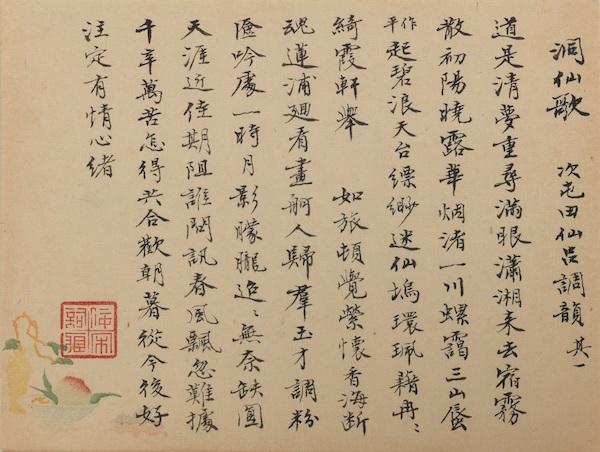 洞仙歌　次屯田仙呂調韻 其一
道是清夢重尋滿眼瀟湘來去宿霧
散初陽曉露華烟渚一川螺靄三山蜃
作平起碧浪天台縹緲迷仙塢環珮藉冉〻
綺霞軒舉　如旅頓覺縈懷香海断
魂蓮浦廻看畫舸人歸羣玉才調粉
吟處一時月影朦朧迢〻無奈缺圓
天涯近佳期阻誰問訊春風飄忽難據
千辛萬苦怎得共合歡朝暮從今後好
注定有情心緒